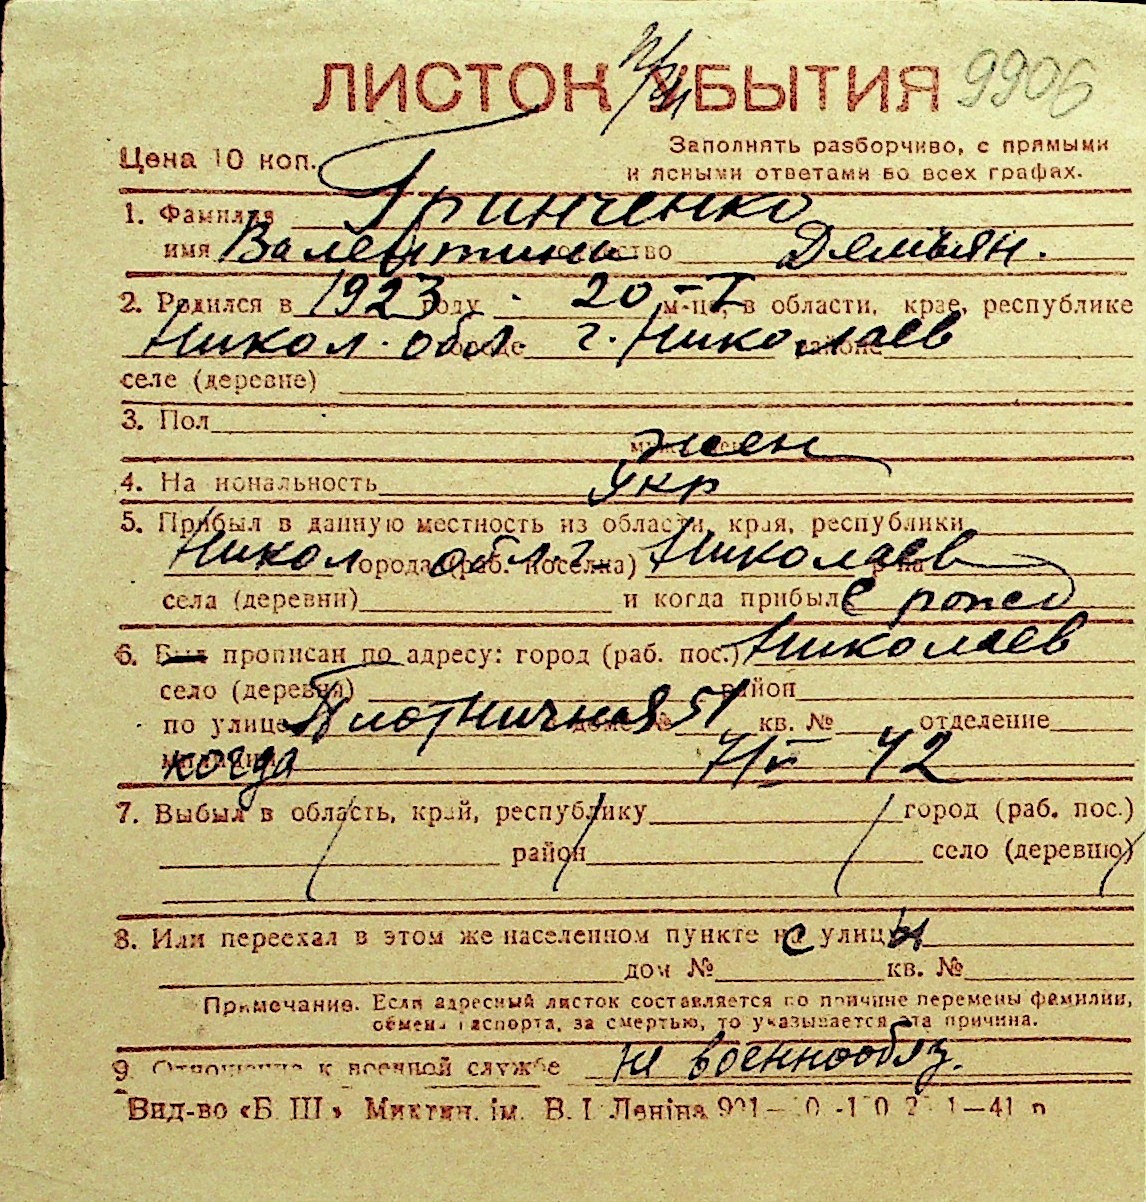 ЛИСТОК УБЫТИЯ 9906
Цена 10 коп.
Заполнять разборчиво, с прямыми
и ясными ответами во всех графах.
1. Фамилия Гринченко
имя Валентина отчество Демьян.
2. Родился в 1923 году 20-I м-це, в области, крае, республике
Никол. обл городе г. Николаев районе
селе (деревне)
3. Пол
жен
4. Национальность Укр
5. Прибыл в данную местность из области, края, республики
Никол обл. г. города (раб. поселка) Николаев р-на
села (деревни) и когда прибыл с рожд
6. Был прописан по адресу: город (раб. пос.) Николаев
село (деревня) район
по улице Плотничная дом № 51 кв. № отделение
милиции когда 42
7. Выбыл в область, край, республику город (раб. пос.)
район село (деревню)
8. Или переехал в этом же населенном пункте с улицы
дом № кв. №
Примечание. Если адресный листок составляется по причине перемены фамилии,
обмена паспорта, за смертью, то указывается эта причина.
9 Отношение к военной службе не военнообяз.
Вид-во «Б. Ш.» Микт ім. В. І. Леніна